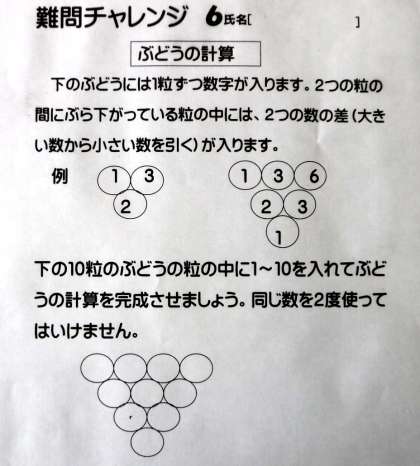 難問チャレンジ 6 氏名[ ]
ぶどうの計算
下のぶどうには1粒ずつ数字が入ります。2つの粒の
間にぶら下がっている粒の中には、2つの数の差(大き
い数から小さい数を引く)が入ります。
例 1 3 1 3 6
2 2 3
1
下の10粒のぶどうの粒の中に1～10を入れてぶど
うの計算を完成させましょう。同じ数を2度使って
はいけません。